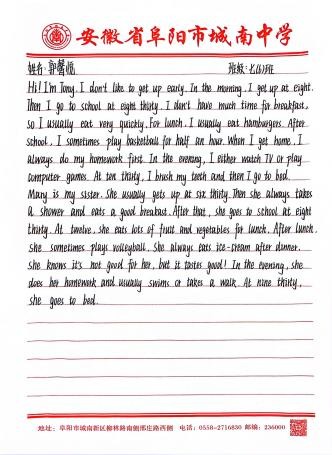 安徽省阜阳市城南中学
姓名: 郭馨悦 班级: 七(6)班
Hi! I'm Tony. I don't like to get up early. In the morning, I get up at eight.
Then I go to school at eight thirty. I don't have much time for breakfast,
so I usually eat very quickly. For lunch, I usually eat hamburgers. After
school, I sometimes play basketball for half an hour. When I get home, I
always do my homework first. In the evening, I either watch TV or play
computer games. At ten thirty, I brush my teeth and then I go to bed.
Mary is my sister. She usually gets up at six thirty. Then she always takes
a shower and eats a good breakfast. After that, she goes to school at eight
thirty. At twelve, she eats lots of fruit and vegetables for lunch. After lunch,
she sometimes plays volleyball. She always eats ice-cream after dinner.
She knows it's not good for her, but it tastes good! In the evening, she
does her homework and usually swims or takes a walk. At nine thirty,
she goes to bed.
地址: 阜阳市城南新区柳林路南侧邢庄路西侧 电话: 0558-2716830 邮编: 236000